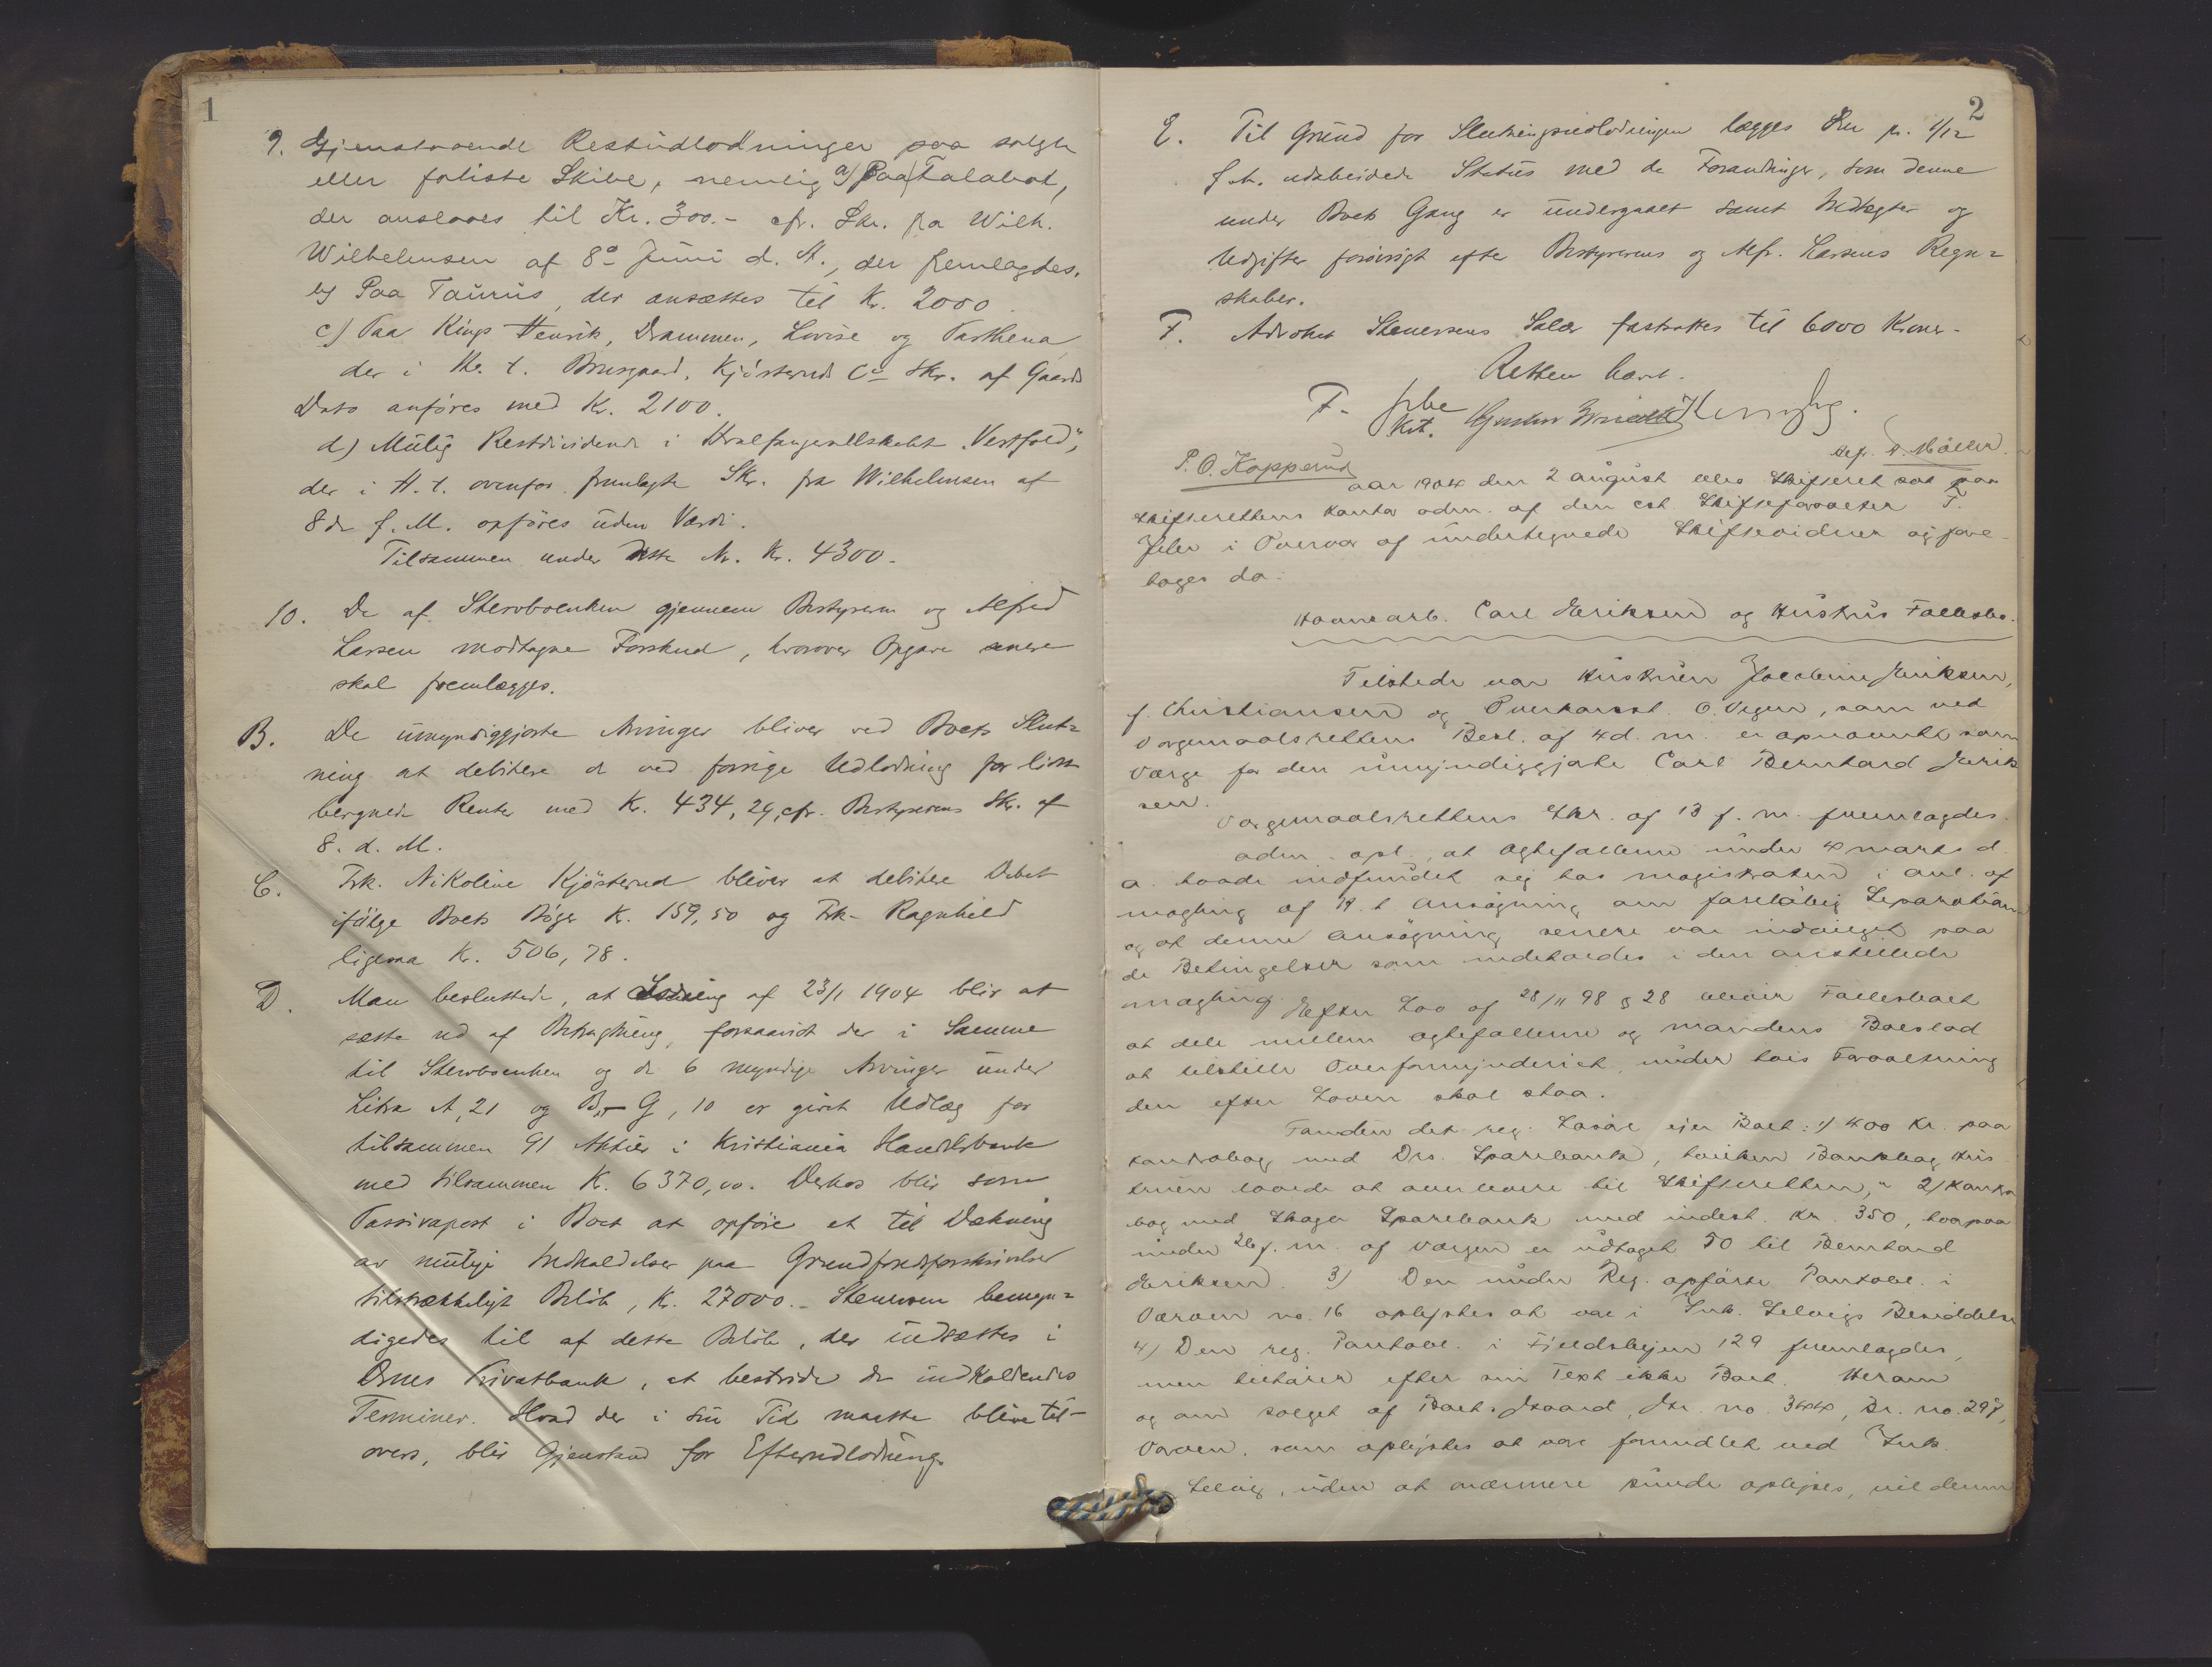 1
9. Gjenstaaende Restudlodninger paa solgte
eller forliste Skibe, nemlig a) Paa Talabot,
der anslaaes til Kr. 300.- cfr. Skr. fra Wilh.
Wilhelmsen af 8de Juni d. A., der fremlagdes.
b) Paa Taurus, der ansættes til Kr. 2000.
c) Paa Kings Henrik, Drammen, Lovise og Parthena
der i H. t. Brusgaard, Kjøsterud Co Skr. af Gaards
Dato anføres med Kr. 2100.
d) Mulig Restdividende i Hvalfangerselskabet "Vestfold",
der i H. t. ovenfor fremlagte Skr. fra Wilhelmsen af
8de f. M. opføres uden Værdi.
Tilsammen under dette Nr. Kr. 4300.-
10. De af Stervboenken gjennem Bestyreren og Alfred
Larsen modtagne Forskud, hvorover Opgave senere
skal fremlægges.
B. De umyndiggjorte Arvinger bliver ved Boets Slut=
ning at debitere de ved forrige Udlodning for lidet
beregnede Renter med Kr. 434,29, cfr. Bestyrerens Skr. af
8. d. M.
C. Frk. Nikoline Kjøsterud bliver at debitere Debet
ifølge Boets Bøger Kr. 159,50 og Frk. Ragnhild
ligesaa Kr. 506,78.
D. Man besluttede, at Lodning af 23/1 1904 blir at
sætte ud af Betragtning, forsaavidt der i Samme
til Stervboenken og de 6 myndige Arvinger under
Litra A, 21 og B - G, 10 er givet Udlæg for
tilsammen 91 Aktier i Kristiania Handelsbank
med tilsammen Kr. 6370,00. Derhos blir som
Passivapost i Boet at opføre et til Dækning
av mulige Indkaldelser paa Grundfondsforskrivelser
tilstrækkeligt Beløb, Kr. 27000.- Stenersen bemyn=
digedes til af dette Beløb, der indsættes i
Drms Privatbank, at bestride de indkaldendes
Terminer. Hvad der i sin Tid maatte blive til-
overs, blir Gjenstand for Efterudlodning.
2
E. Til Grund for Slutningsudlodningen lægges den pr. 1/12
f. A. udarbeidede Status med de Forandringer, som denne
under Boets Gang er undergaaet samt Indtægter og
Udgifter forøvrigt efter Bestyrerens og Alfr. Larsens Regn=
skaber.
F. Advokat Stenersens Salær fastsattes til 6000 Kroner.-
Retten hævet.
F. Jebe
kst.
P. O. Kopperud
Alfr. R. Møller.
Aar 1904 den 2 august blev Skifteret sat paa
Skifterettens Kontor adm. af den cst Skifteforvalter F.
Jebe i Overvær af undertegnede Skiftevidner og fore-
toges da:
Havnearb. Carl Eriksen og Hustrus Fællesbo.
Tilstede var Hustruen Jacobine Eriksen,
f. Christiansen og Overkonst. O. Vegen, som ved
Værgemaalsrettens Besl. af 4 d. m. er opnævnt som
Værge for den umyndiggjorte Carl Bernhard Erik
sen.
Værgemaalsrettens Skr. af 13 f. m. fremlagdes.
adm. opl., at Ægtefællerne under 4 marts d.
a. havde indfundet sig hos magistraten i anl. af
mægling af H. t. Ansøgning om foreløbig Separation
og at denne Ansøgning senere var indvilget paa
de Betingelser som indeholdes i den anstillede
mægling. Efter Lov af 28/11 98 § 28 bliver Fællesboet
at dele mellem Ægtefællerne og mandens Boeslod
at tilstille Overformynderiet, under hvis Forvaltning
den efter Loven skal staa.
Foruden det reg. Løsøre ejer Boet: 1) 400 Kr. paa
Kontrabog med Drs. Sparebank, hvilken Bankbog Hus
truen lovede at overlevere til Skifteretten, 2) Kontra
bog med Skoger Sparebank med indest. Kr. 350, hvorpaa
under 26 f. m. af Værgen er udtaget 50 til Bernhard
Eriksen. 3) Den under Reg. opførte Pantobl. i
Værven no. 16 oplystes at være i Snk. Selvigs Besiddelse
4) Den reg. Pantobl. i Fjeldsbyen 129 fremlagdes,
men tilhører efter sin Text ikke Boet. Herom
og om Salget af Boets Gaard, Gr. no. 344, Br. no. 297,
Værven, som oplystes at være formidlet ved Snk.
Selvig, uden at nærmere kunde oplyses, vil denne